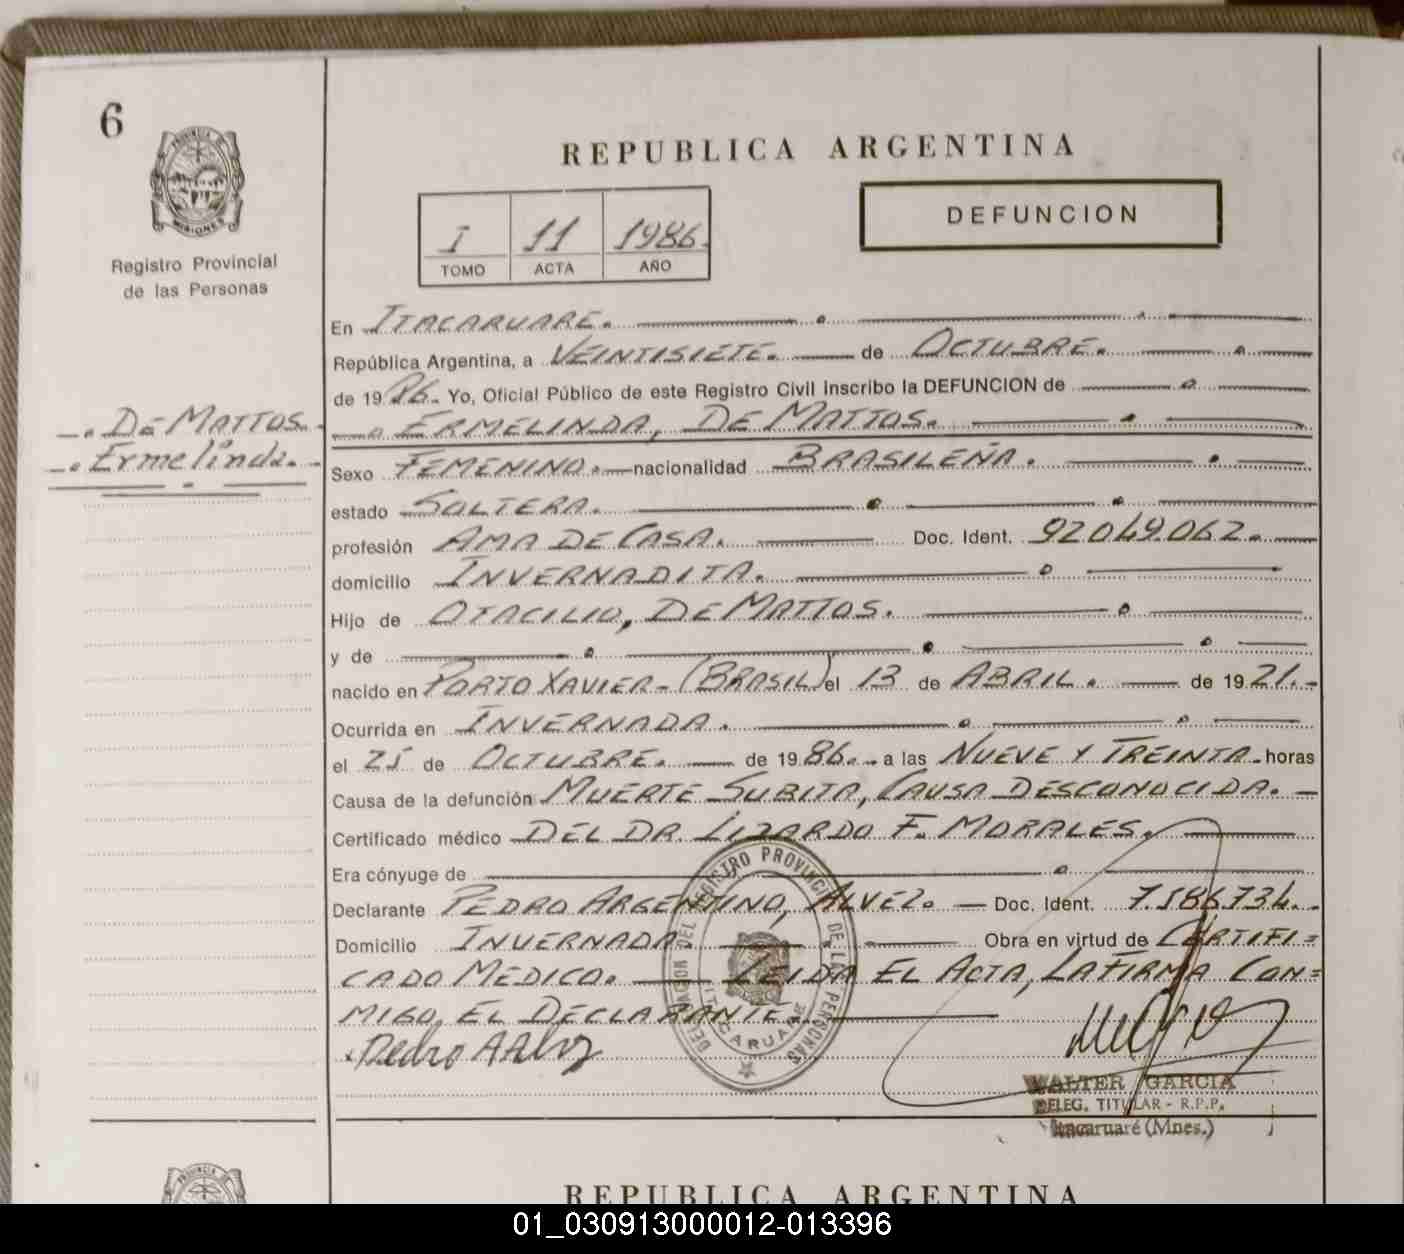 6
PROVINCIA DE
MISIONES
Registro Provincial
de las Personas
DE MATTOS.
Ermelinda.
REPUBLICA ARGENTINA
I 11 1986.
TOMO ACTA AÑO
DEFUNCION
En ITACARUARE.
República Argentina, a VEINTISIETE. de OCTUBRE.
de 1986. Yo, Oficial Público de este Registro Civil Inscribo la DEFUNCION de
ERMELINDA, DE MATTOS.
Sexo FEMENINO. nacionalidad BRASILEÑA.
estado SOLTERA.
profesión AMA DE CASA. Doc. Ident. 92.049.062.
domicilio INVERNADITA.
Hijo de OTACILIO, DE MATTOS.
y de
nacido en PORTO XAVIER-(BRASIL) el 13 de ABRIL. de 1921.-
Ocurrida en INVERNADA.
el 25 de OCTUBRE. de 1986. a las NUEVE Y TREINTA- horas
Causa de la defunción MUERTE SUBITA, CAUSA DESCONOCIDA. -
Certificado médico DEL DR. LIZARDO F. MORALES.
Era cónyuge de
Declarante PEDRO ARGENTINO, ALVEZ. - Doc. Ident. 7.586.734.-
Domicilio INVERNADA. Obra en virtud de CERTIFI=
CADO MEDICO. LEIDA EL ACTA, LA FIRMA CON=
MIGO, EL DECLARANTE.
Pedro A Alvez
DELEGACION DEL REGISTRO PROVINCIAL DE LAS PERSONAS
ITACARUARE
WALTER GARCIA
DELEG. TITULAR - R.P.P.
Itacaruaré (Mnes.)
PROVINCIA
REPUBLICA ARGENTINA
01_030913000012-013396